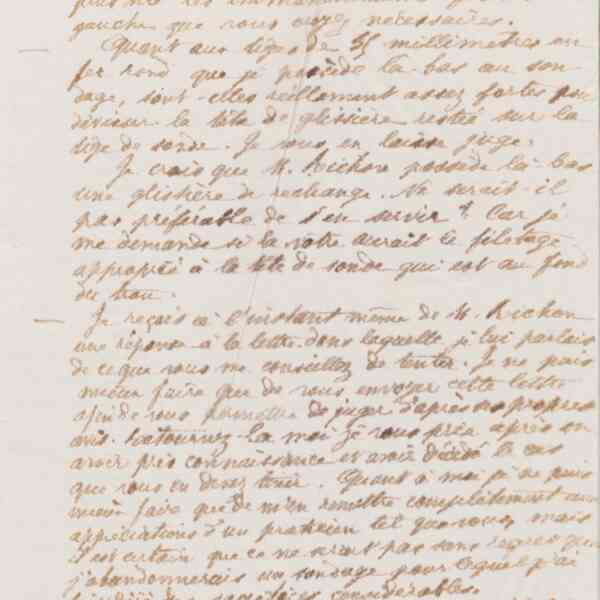 gauche que vous croyez nécessaires.
Quant aux tiges de 35 millimètres en
fer rond que je possède là-bas au son
dage, sont-elles réellement assez fortes pour
dévisser la tête de glissière restée sur la
tige de sonde. Je vous en laisse juge.
Je crois que M. Richon possède là-bas
une glissière de rechange. Ne serait-il
pas préférable de s'en servir? Car je
me demande si la vôtre aurait le filetage
approprié à la tête de sonde qui est au fond
du trou.
Je reçois à l'instant même de M. Richon
une réponse à la lettre dans laquelle je lui parlais
de ce que vous me conseillez de tenter. Je ne puis
mieux faire que de vous envoyer cette lettre
afin de vous permettre de juger d'après ses propres
avis. Retournez-la moi je vous prie après en
avoir pris connaissance et avoir décidé le cas
que vous en devez tenir. Quant à moi je ne puis
mieux faire que de m'en remettre complètement aux
appréciations d'un praticien tel que vous, mais
il est certain que ce ne serait pas sans regret que
j'abandonnerais un sondage pour lequel j'ai
des sacrifices considérables.